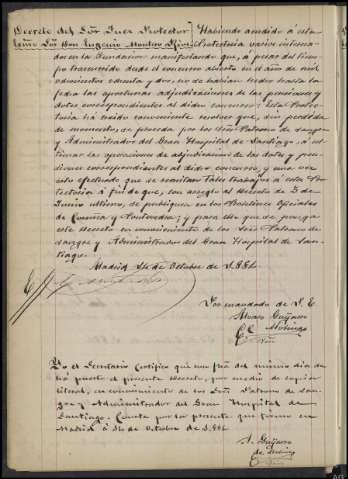 Decreto del Sor Juez Protector
Exmo Sor Don Eugenio Montero Rios
Habiendo acudido á esta
Protectoria varios interesa-
dos en la fundacion manifestando que, á pesar del tiem-
po transcurrido desde el concurso abierto en el año de mil
ochocientos ochenta y dos, no se habian hecho hasta la
fecha las oportunas adjudicaciones de las pensiones y
dotes correspondientes al dicho concurso: Esta Protec-
toria há creido conveniente resolver que, sin perdida
de momento, se proceda por los Sres Patrono de sangre
y Administrador del Gran Hospital de Santiago, á ul-
timar las operaciones de adjudicacion de las dotes y pen-
siones correspondientes al dicho concurso, y una vez
esto efectuado que se remitan tales trabajos á esta Pro-
tectoria á fin de que, con arreglo al decreto de 5 de
Junio ultimo, se publiquen en los Boletines oficiales
de Coruña y Pontevedra; y para ello que se ponga
este decreto en conocimiento de los Sres Patrono de
sangre y Administrador del Gran Hospital de San-
tiago.
Madrid 14 de Octubre de 1.884.
Por mandado de S. E.
Alvaro Guijarro
Yo el Secretario Certifico que con fha del mismo dia
puesto el presente decreto, por medio de copia
literal, en conocimiento de los Sres Patrono de san-
gre y Administrador del Gran Hospital de
Santiago. Conste por la presente que firmo en
Madrid á 14 de Octubre de 1.884
A. Guijarro